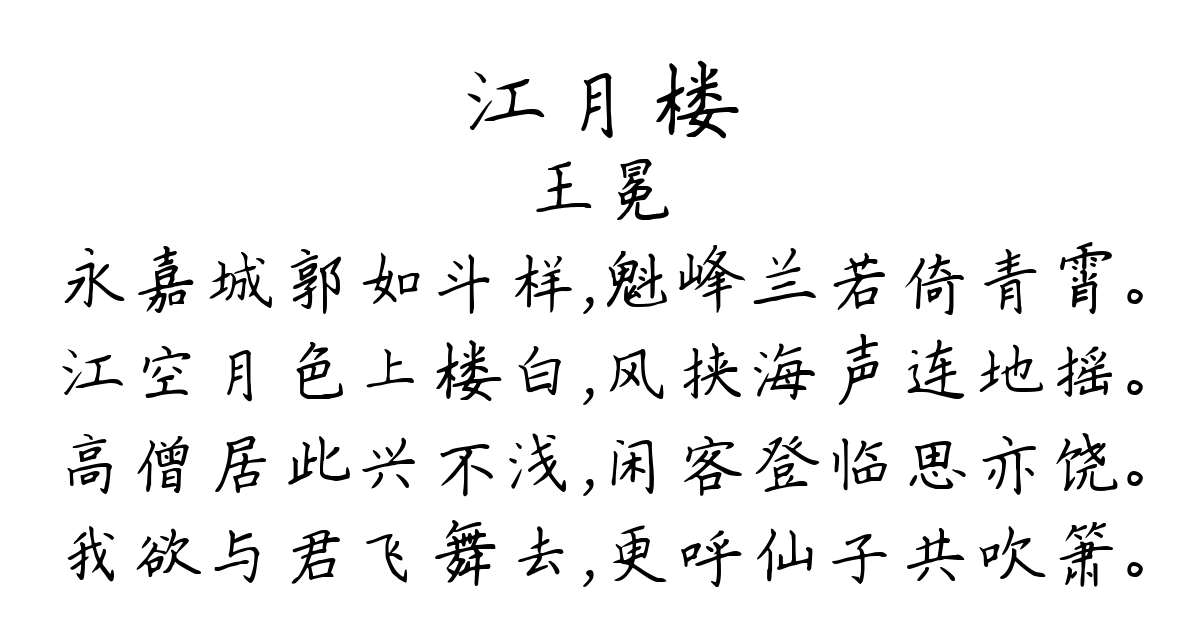 江月楼
王冕
永嘉城郭如斗样,魁峰兰若倚青霄。
江空月色上楼白,风挟海声连地摇。
高僧居此兴不浅,闲客登临思亦饶。
我欲与君飞舞去,更呼仙子共吹箫。